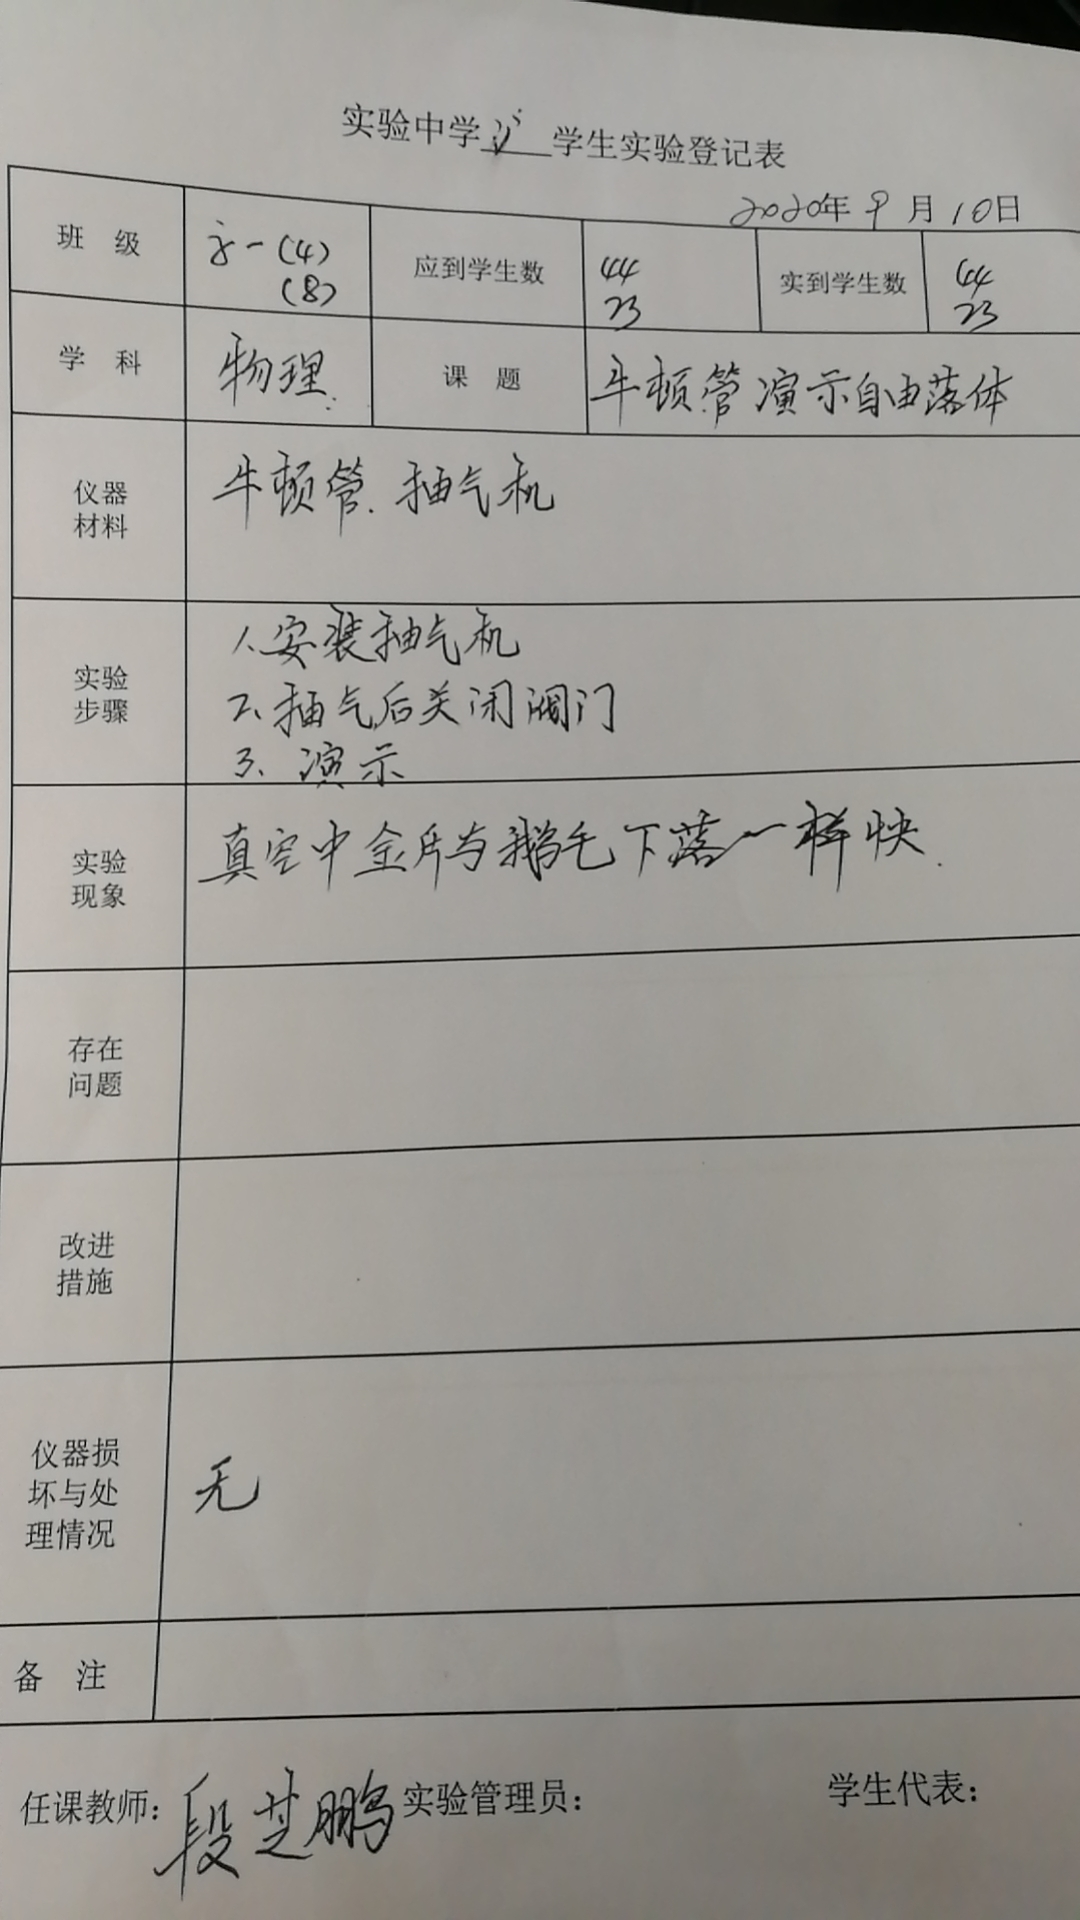 实验中学 学生实验登记表
2020年9月10日
班 级 高一(4) 应到学生数 44 实到学生数 44
(8) 23 23
学 科 物理 课 题 牛顿管演示自由落体
仪器
材料
牛顿管. 抽气机
实验
步骤
1.安装抽气机
2、抽气后关闭阀门
3、演示
实验
现象
真空中金片与鹅毛下落一样快.
存在
问题
改进
措施
仪器损
坏与处
理情况
无
备 注
任课教师：段芝鹏 实验管理员： 学生代表：